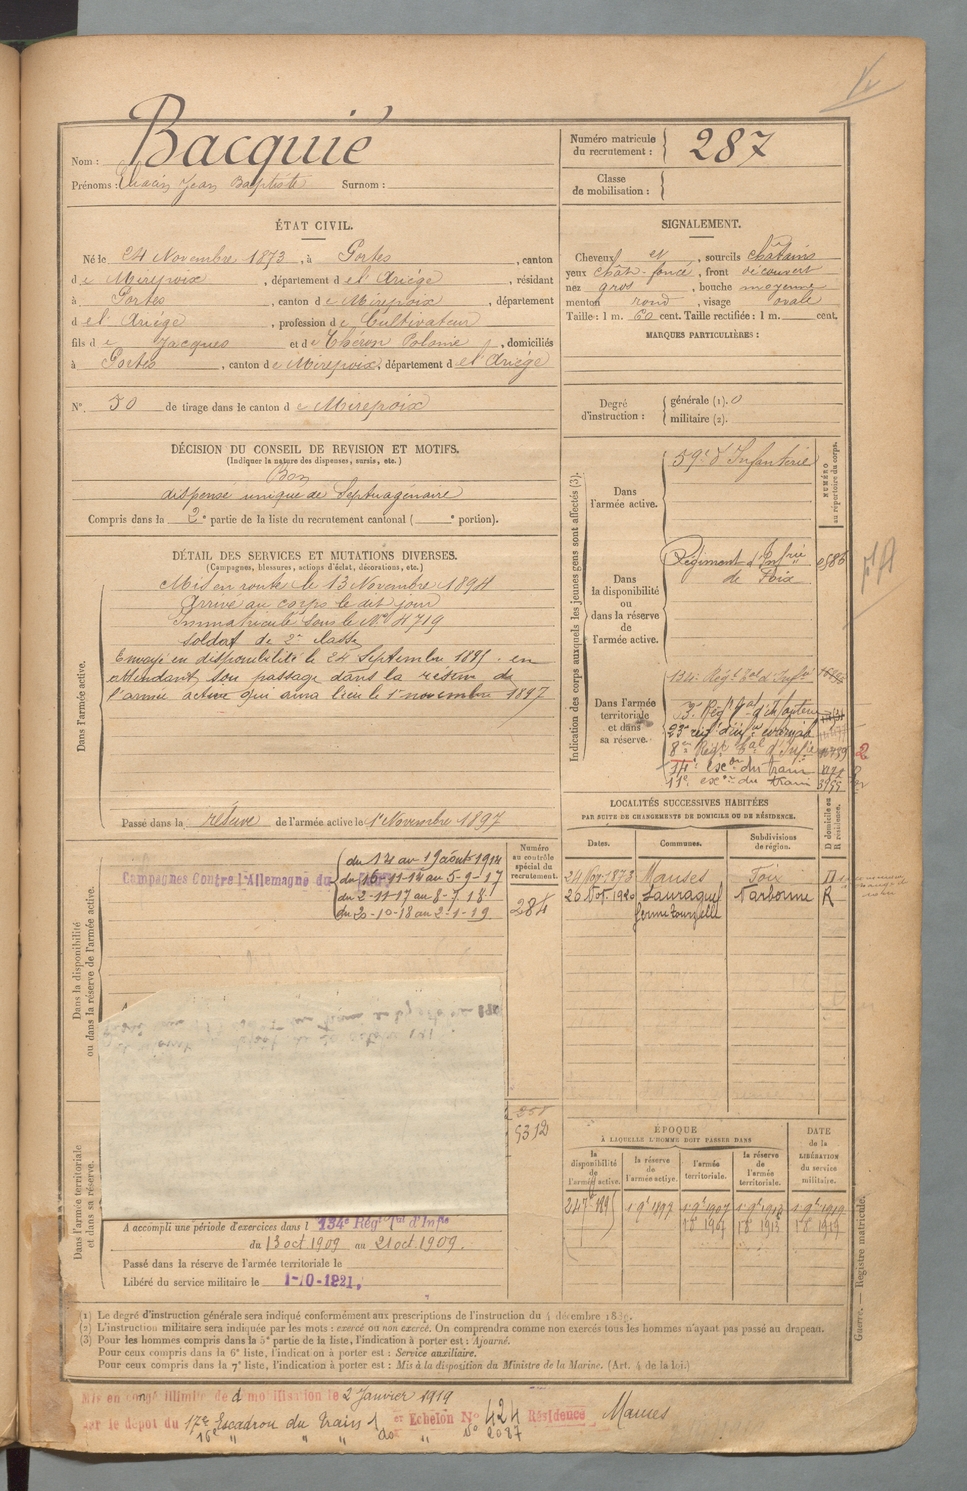 Nom : Bacquié
Prénoms : Jean Baptiste Surnom :
Numéro matricule du recrutement : 287
Classe de mobilisation :
ÉTAT CIVIL.
Né le 24 Novembre 1873, à Portes, canton
de Mirepoix, département de l'Ariége, résidant
à Portes, canton de Mirepoix, département
de l'Ariége, profession de Cultivateur
fils de Jacques et de Théron, domiciliés
à Portes, canton de Mirepoix, département de l'Ariége
N° 50 de tirage dans le canton de Mirepoix
SIGNALEMENT.
Cheveux et, sourcils châtains
yeux chât. foncé, front découvert
nez gros, bouche moyenne
menton rond, visage ovale
Taille : 1 m. 60 cent. Taille rectifiée : 1 m. cent.
MARQUES PARTICULIÈRES :
Degré d'instruction : générale (1). 0
militaire (2).
DÉCISION DU CONSEIL DE REVISION ET MOTIFS.
(Indiquer la nature des dispenses, sursis, etc.)
Bon
dispensé unique de Septuagénaire
Compris dans la 2e partie de la liste du recrutement cantonal ( e portion).
DÉTAIL DES SERVICES ET MUTATIONS DIVERSES.
(Campagnes, blessures, actions d'éclat, décorations, etc.)
Dans l'armée active.
Mis en route le 13 Novembre 1894
Arrivé au corps le dit jour
Immatriculé sous le N° 4719
soldat de 2e classe
Envoyé en disponibilité le 24 Septembre 1895 en
attendant son passage dans la réserve de
l'armée active qui aura lieu le 1er novembre 1897
Passé dans la réserve de l'armée active le 1er Novembre 1897
Indication des corps auxquels les jeunes gens sont affectés (3).
NUMÉRO au répertoire du corps.
Dans l'armée active.
59e d'Infanterie
Dans la disponibilité ou dans la réserve de l'armée active.
Régiment d'Infrie
de Foix
Dans l'armée territoriale et dans sa réserve.
134e Régt Tal d'Infie
8e Régt Tal d'Infie
14e escon du train
11e escon du train
LOCALITÉS SUCCESSIVES HABITÉES
PAR SUITE DE CHANGEMENTS DE DOMICILE OU DE RÉSIDENCE.
Dates. Communes. Subdivisions de région. D domicile ou R résidence.
Manses Foix D
26 Nov. 1920 Lauraguel Narbonne R
Dans la disponibilité ou dans la réserve de l'armée active.
Campagnes Contre l'Allemagne du
du 12 au 19 août 1914
du 16-11-14 au 5-9-17
du 2-11-17 au 8-7-18
du 20-10-18 au 2-1-19
Numéro au contrôle spécial du recrutement.
284
5312
Dans l'armée territoriale et dans sa réserve.
A accompli une période d'exercices dans l 134e Régt Tal d'Infie
du 13 oct 1909 au 21 oct 1909.
Passé dans la réserve de l'armée territoriale le
Libéré du service militaire le 1-10-1921.
ÉPOQUE
À LAQUELLE L'HOMME DOIT PASSER DANS
la disponibilité de l'armée active. la réserve de l'armée active. l'armée territoriale. la réserve de l'armée territoriale. DATE de la LIBÉRATION du service militaire.
1897 1907 1919
Guerre. — Registre matricule.
(1) Le degré d'instruction générale sera indiqué conformément aux prescriptions de l'instruction du 4 décembre 1889.
(2) L'instruction militaire sera indiquée par les mots : exercé ou non exercé. On comprendra comme non exercés tous les hommes n'ayant pas passé au drapeau.
(3) Pour les hommes compris dans la 5e partie de la liste, l'indication à porter est : Ajourné.
Pour ceux compris dans la 6e liste, l'indication à porter est : Service auxiliaire.
Pour ceux compris dans la 7e liste, l'indication à porter est : Mis à la disposition du Ministre de la Marine. (Art. 4 de la loi.)
Mis en congé illimité de démobilisation le 2 Janvier 1919
par le dépôt du 17e Escadron du Train 1er Echelon N° 424 Résidence Manses
16e " " " do " N° 2087